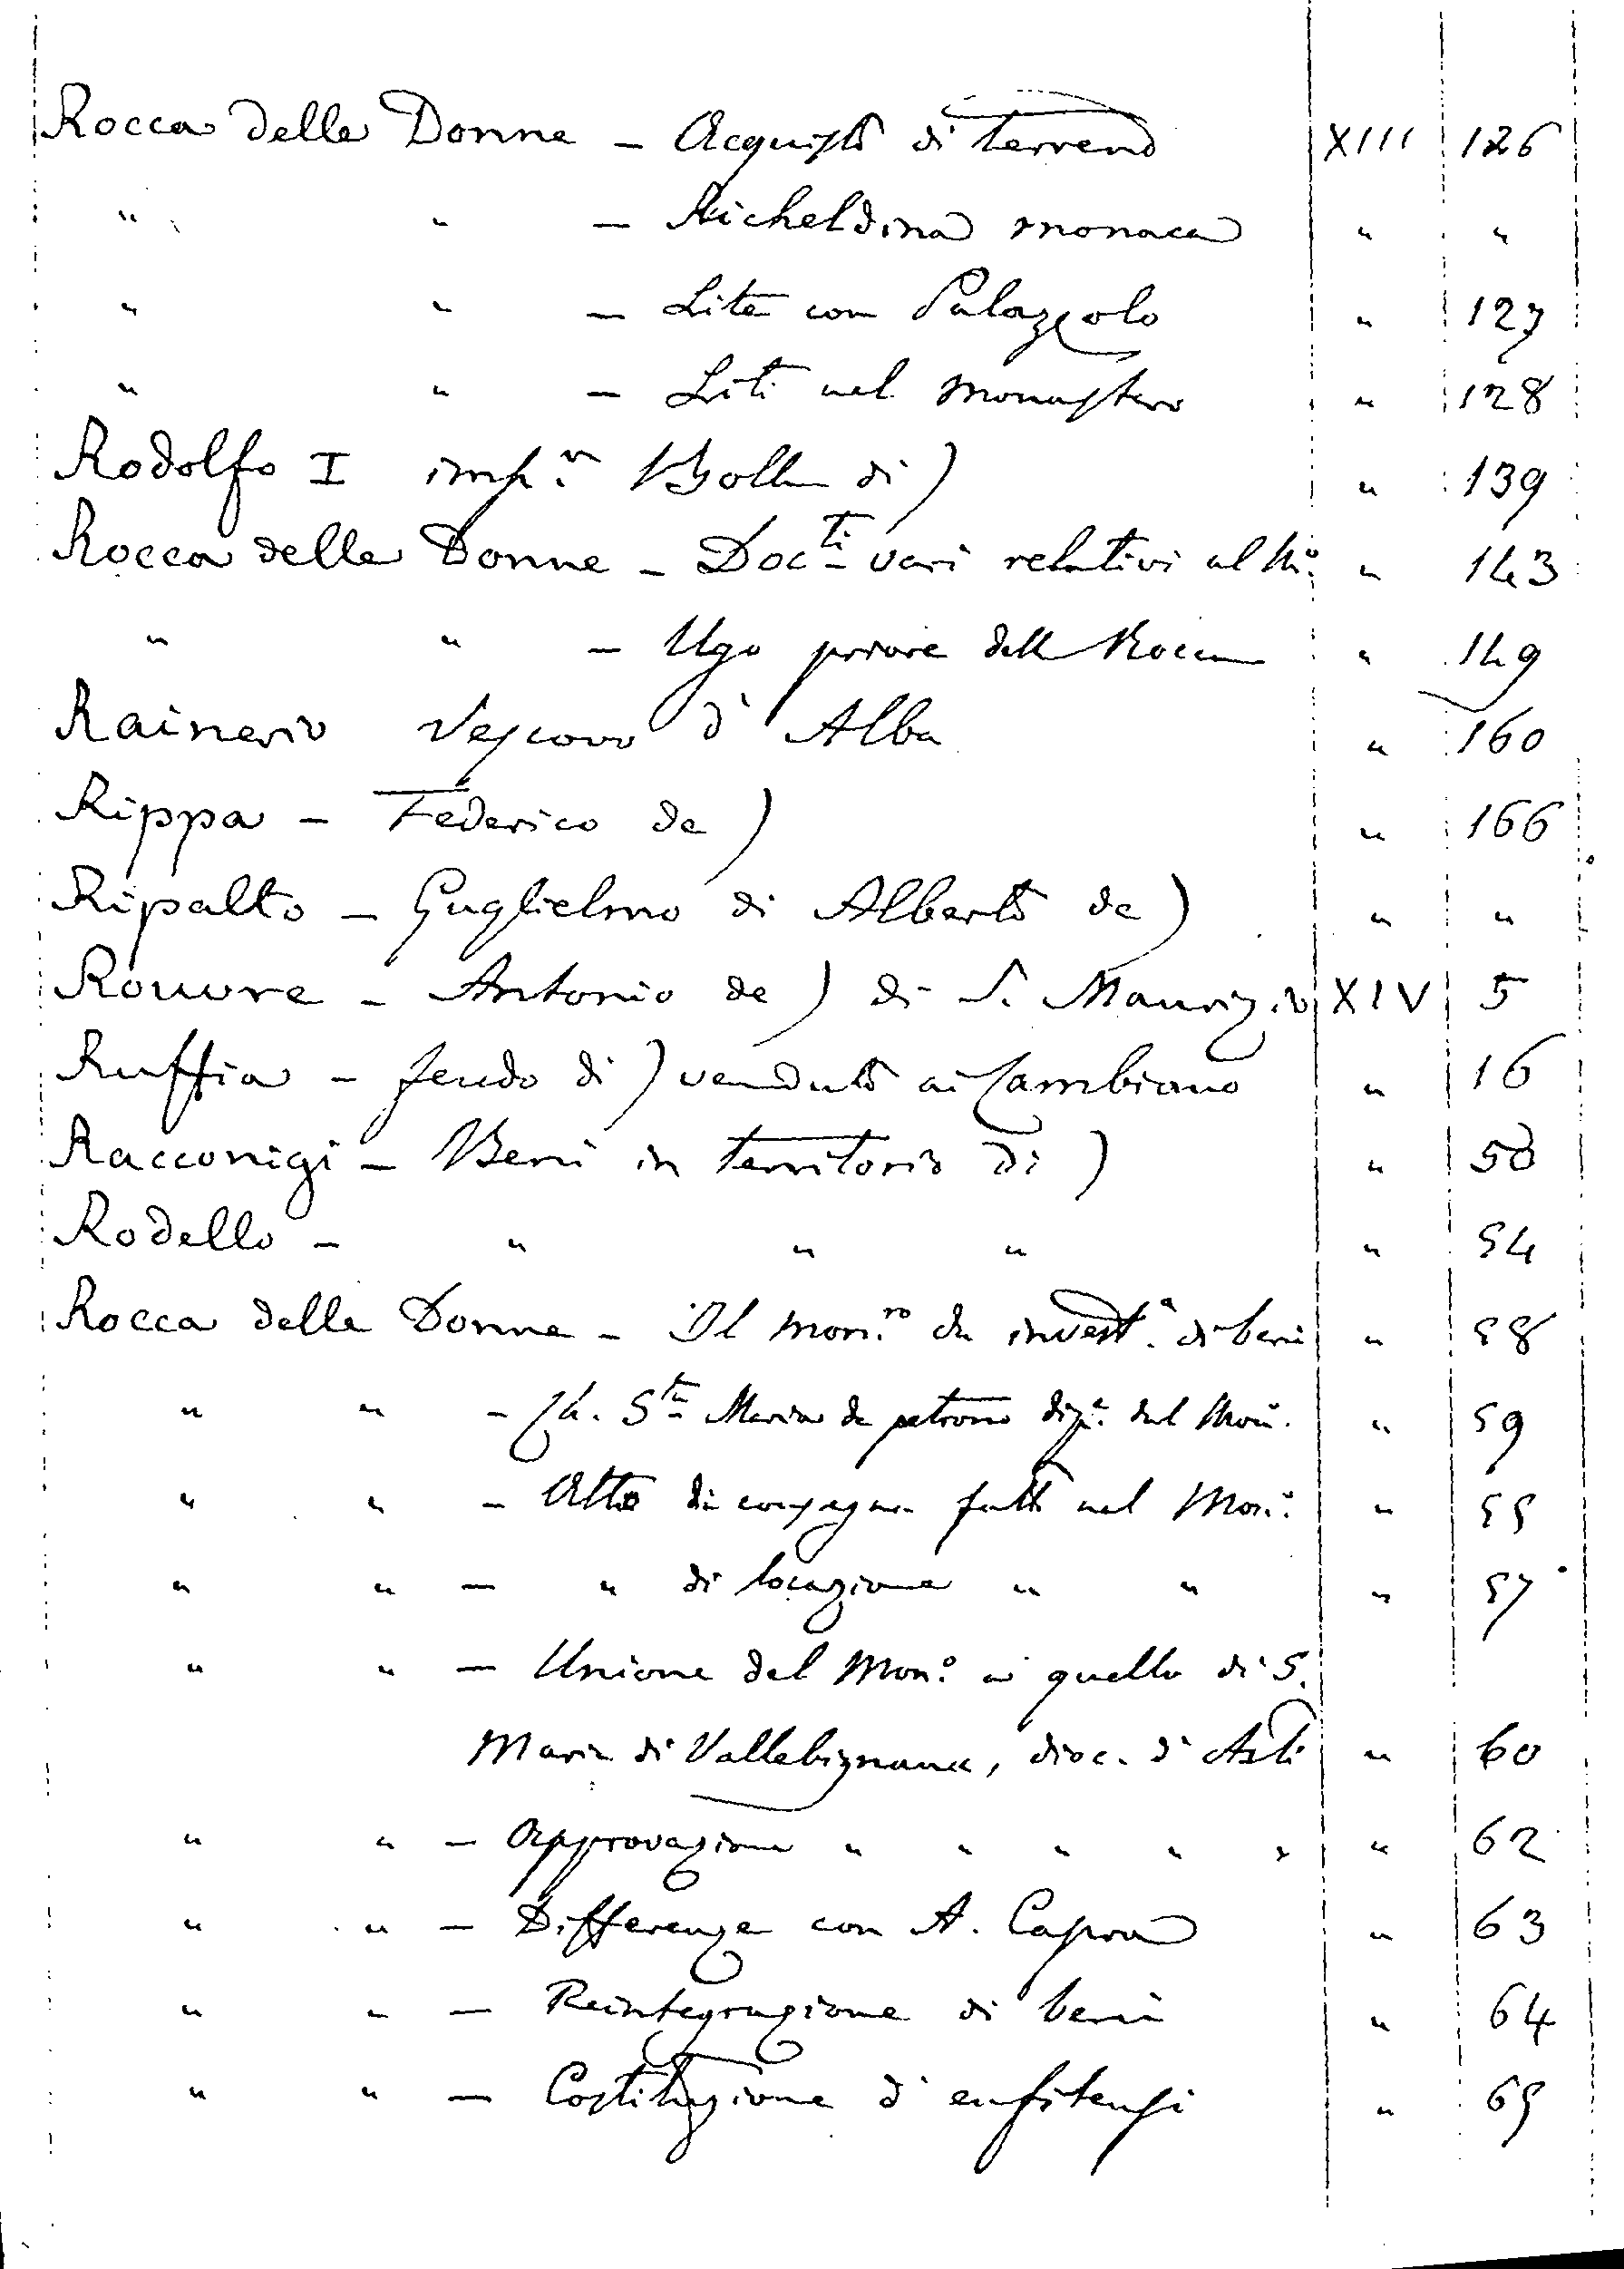 Rocca delle Donne – Acquisto di terreno XIII 126
" " – Richeldina monaca " "
" " – Lite con Palazzolo " 127
" " – Liti nel monastero " 128
Rodolfo I imp.re Bolla di) " 139
Rocca delle Donne – Doc.ti vari relativi al M.o " 143
" " – Ugo priore della Rocca " 149
Rainerio Vescovo d'Alba " 160
Rippa – Federico de) " 166
Ripalto – Guglielmo di Alberto de) " "
Rouvre – Antonio de) di S. Maurizio XIV 5
Ruffia – feudo di) venduto ai Cambiano " 16
Racconigi – Beni in territorio di) " 50
Rodello – " " " " 54
Rocca delle Donne – Il mon.ro da invest.a di beni " 58
" " – Ch. S.ta Maria de petroro dip.e dal Mon.o " 59
" " – Atto di consegna fatto nel Mon.o " 55
" " – " di locazione " " " 57
" " – Unione del Mon.o a quello di S.
Maria di Vallebignana, dioc. d'Asti " 60
" " – Approvazione " " " " " " 62
" " – Differenze con A. Capra " 63
" " – Reintegrazione di beni " 64
" " – Costituzione d'enfiteusi " 65